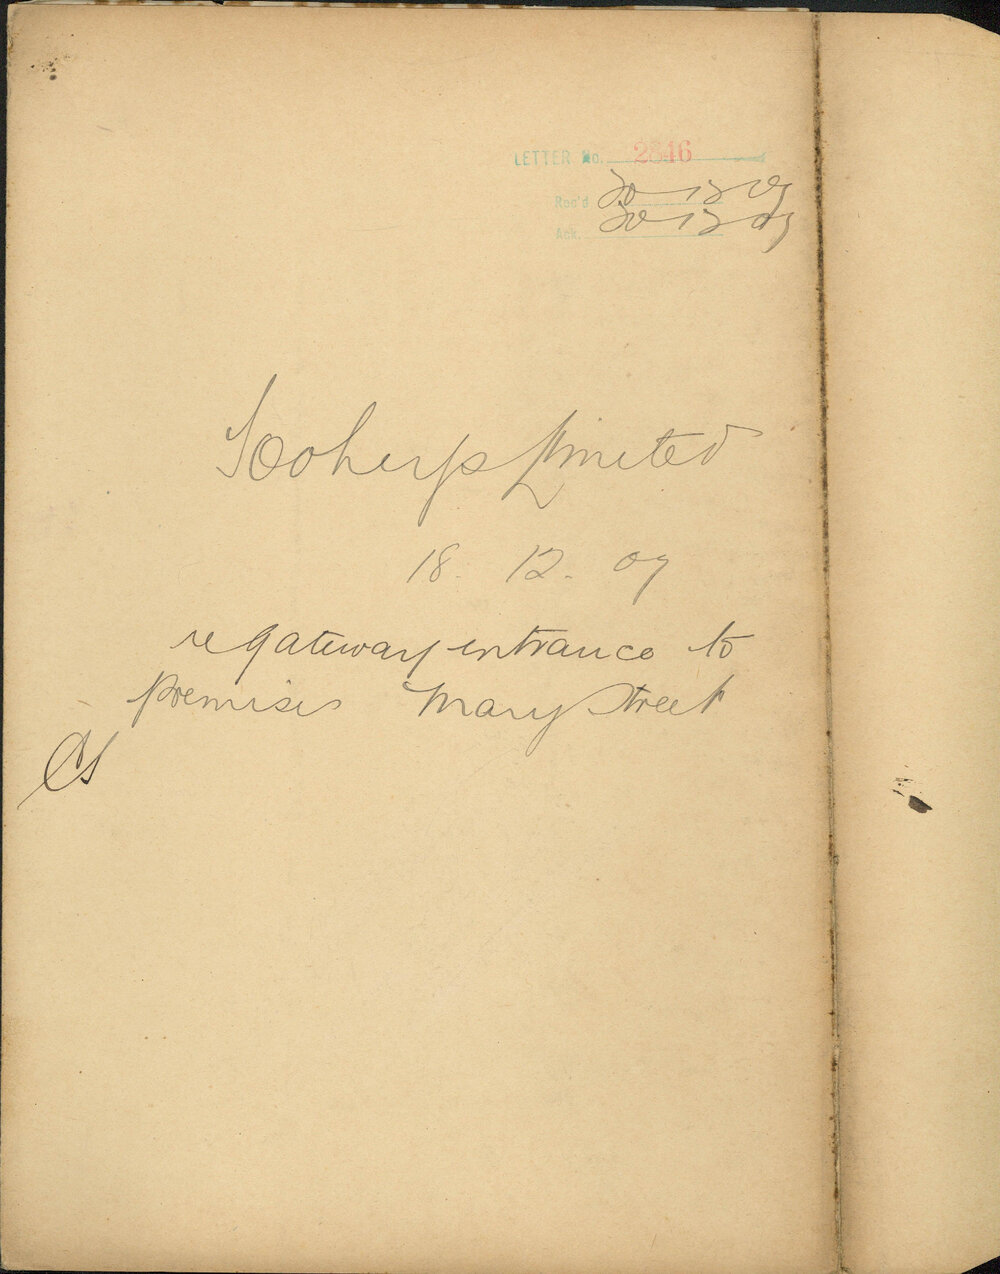 LETTER No. 2846
Rec'd 20 12 09
Ack. 20 12 09
Limited
18. 12. 09
re gateway entrance to
premises Mary Street
CS